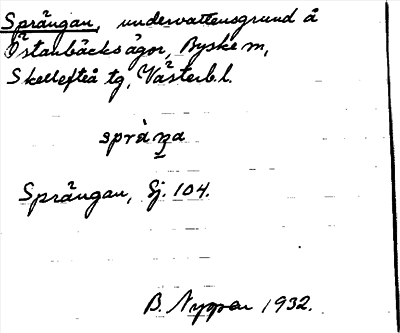 Sprängan, undervattensgrund å
Östanbäcks ägor, Byske sn,
Skellefteå tg, Västerb. l.
spràŋa
Sprängan, Sj. 104.
B. Nyman 1932.